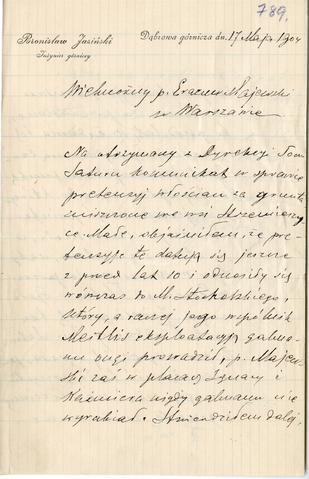 789.
Bronisław Jasiński
Inżynier górniczy
Dąbrowa górnicza dn. 17 Maja 1904
Wielmożny p. Erazm Majewski
w Warszawie
Na otrzymany z Dyrekcyi Tow
komunikat w sprawie
pretensyj włościan za grunta
zniszczone we wsi Strzemieszy
ce Małe, objaśniłem, że pre-
tensyje te datują się jeszcze
z przed lat 10 i odnosiły się
wówczas do M. Stokolskiego,
który, a raczej jego wspólnik
Meitlis eksploatacyją galma-
nu ongi prowadził, p. Majew-
ski zaś w placach Ignacy i
Kazimierz nigdy galmanu nie
wyrabiał. Stwierdziłem dalej,